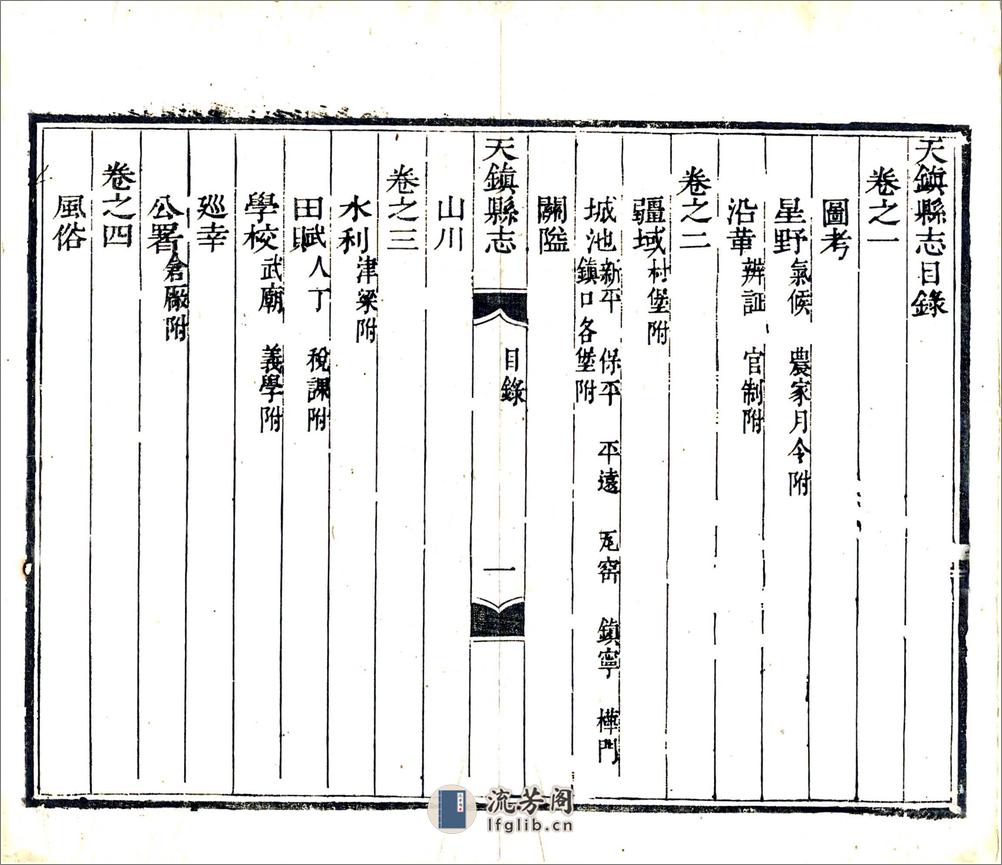 天鎮縣志目錄
卷之一
圖考
星野 氣候 農家月令附
沿革 辨証 官制附
卷之二
疆域 村堡附
城池 新平 保平 平遠 瓦窑 鎮寧 樺門
鎮口各堡附
關隘
天鎮縣志 目錄 一
山川
卷之三
水利 津梁附
田賦 人丁 稅課附
學校 武廟 義學附
廵幸
公署 倉廠附
卷之四
風俗
流芳阁
lfglib.cn